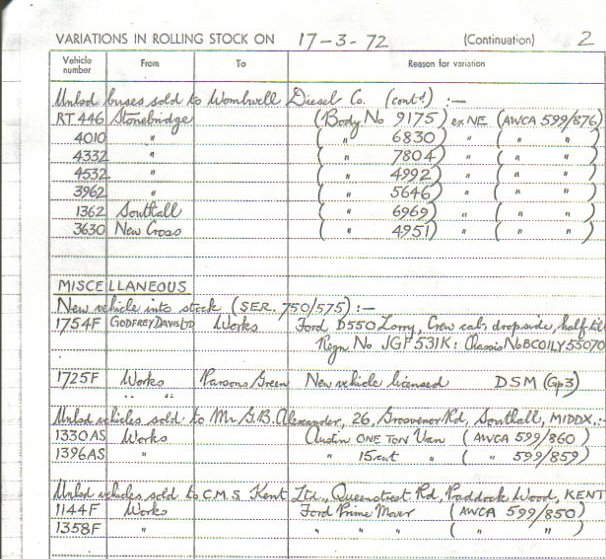 VARIATIONS IN ROLLING STOCK ON 17-3-72 (Continuation) 2
Vehicle number From To Reason for variation
Unlsd buses sold to Wombwell Diesel Co. (contd) :—
RT 446 Stonebridge (Body No 9175) ex NE (AWCA 599/876)
4010 " ( " 6830) " ( " " )
4332 " ( " 7804) " ( " " )
4532 " ( " 4992) " ( " " )
3962 " ( " 5646) " ( " " )
1362 Southall ( " 6969) " ( " " )
3630 New Cross ( " 4951) " ( " " )
MISCELLANEOUS
New vehicle into stock (SER. 750/575) :—
1754F GODFREY DAVIS LTD Works Ford D550 Lorry, Crew cab, dropside, half tilt
Regn No JGF 531K : Chassis No BCOILY55070
1725F Works Parsons Green New vehicle licensed DSM (Gp3)
" "
Unlsd vehicles sold to Mr G.B. Alexander, 26, Grosvenor Rd, Southall, MIDDX. :-
1330AS Works Austin ONE TON Van (AWCA 599/860)
1396AS " " 15cwt " ( " 599/859)
Unlsd vehicles sold to C.M.S. Kent Ltd, Rd, Paddock Wood, KENT
1144F Works Ford Prime Mover (AWCA 599/850)
1358F " " " " ( " " )